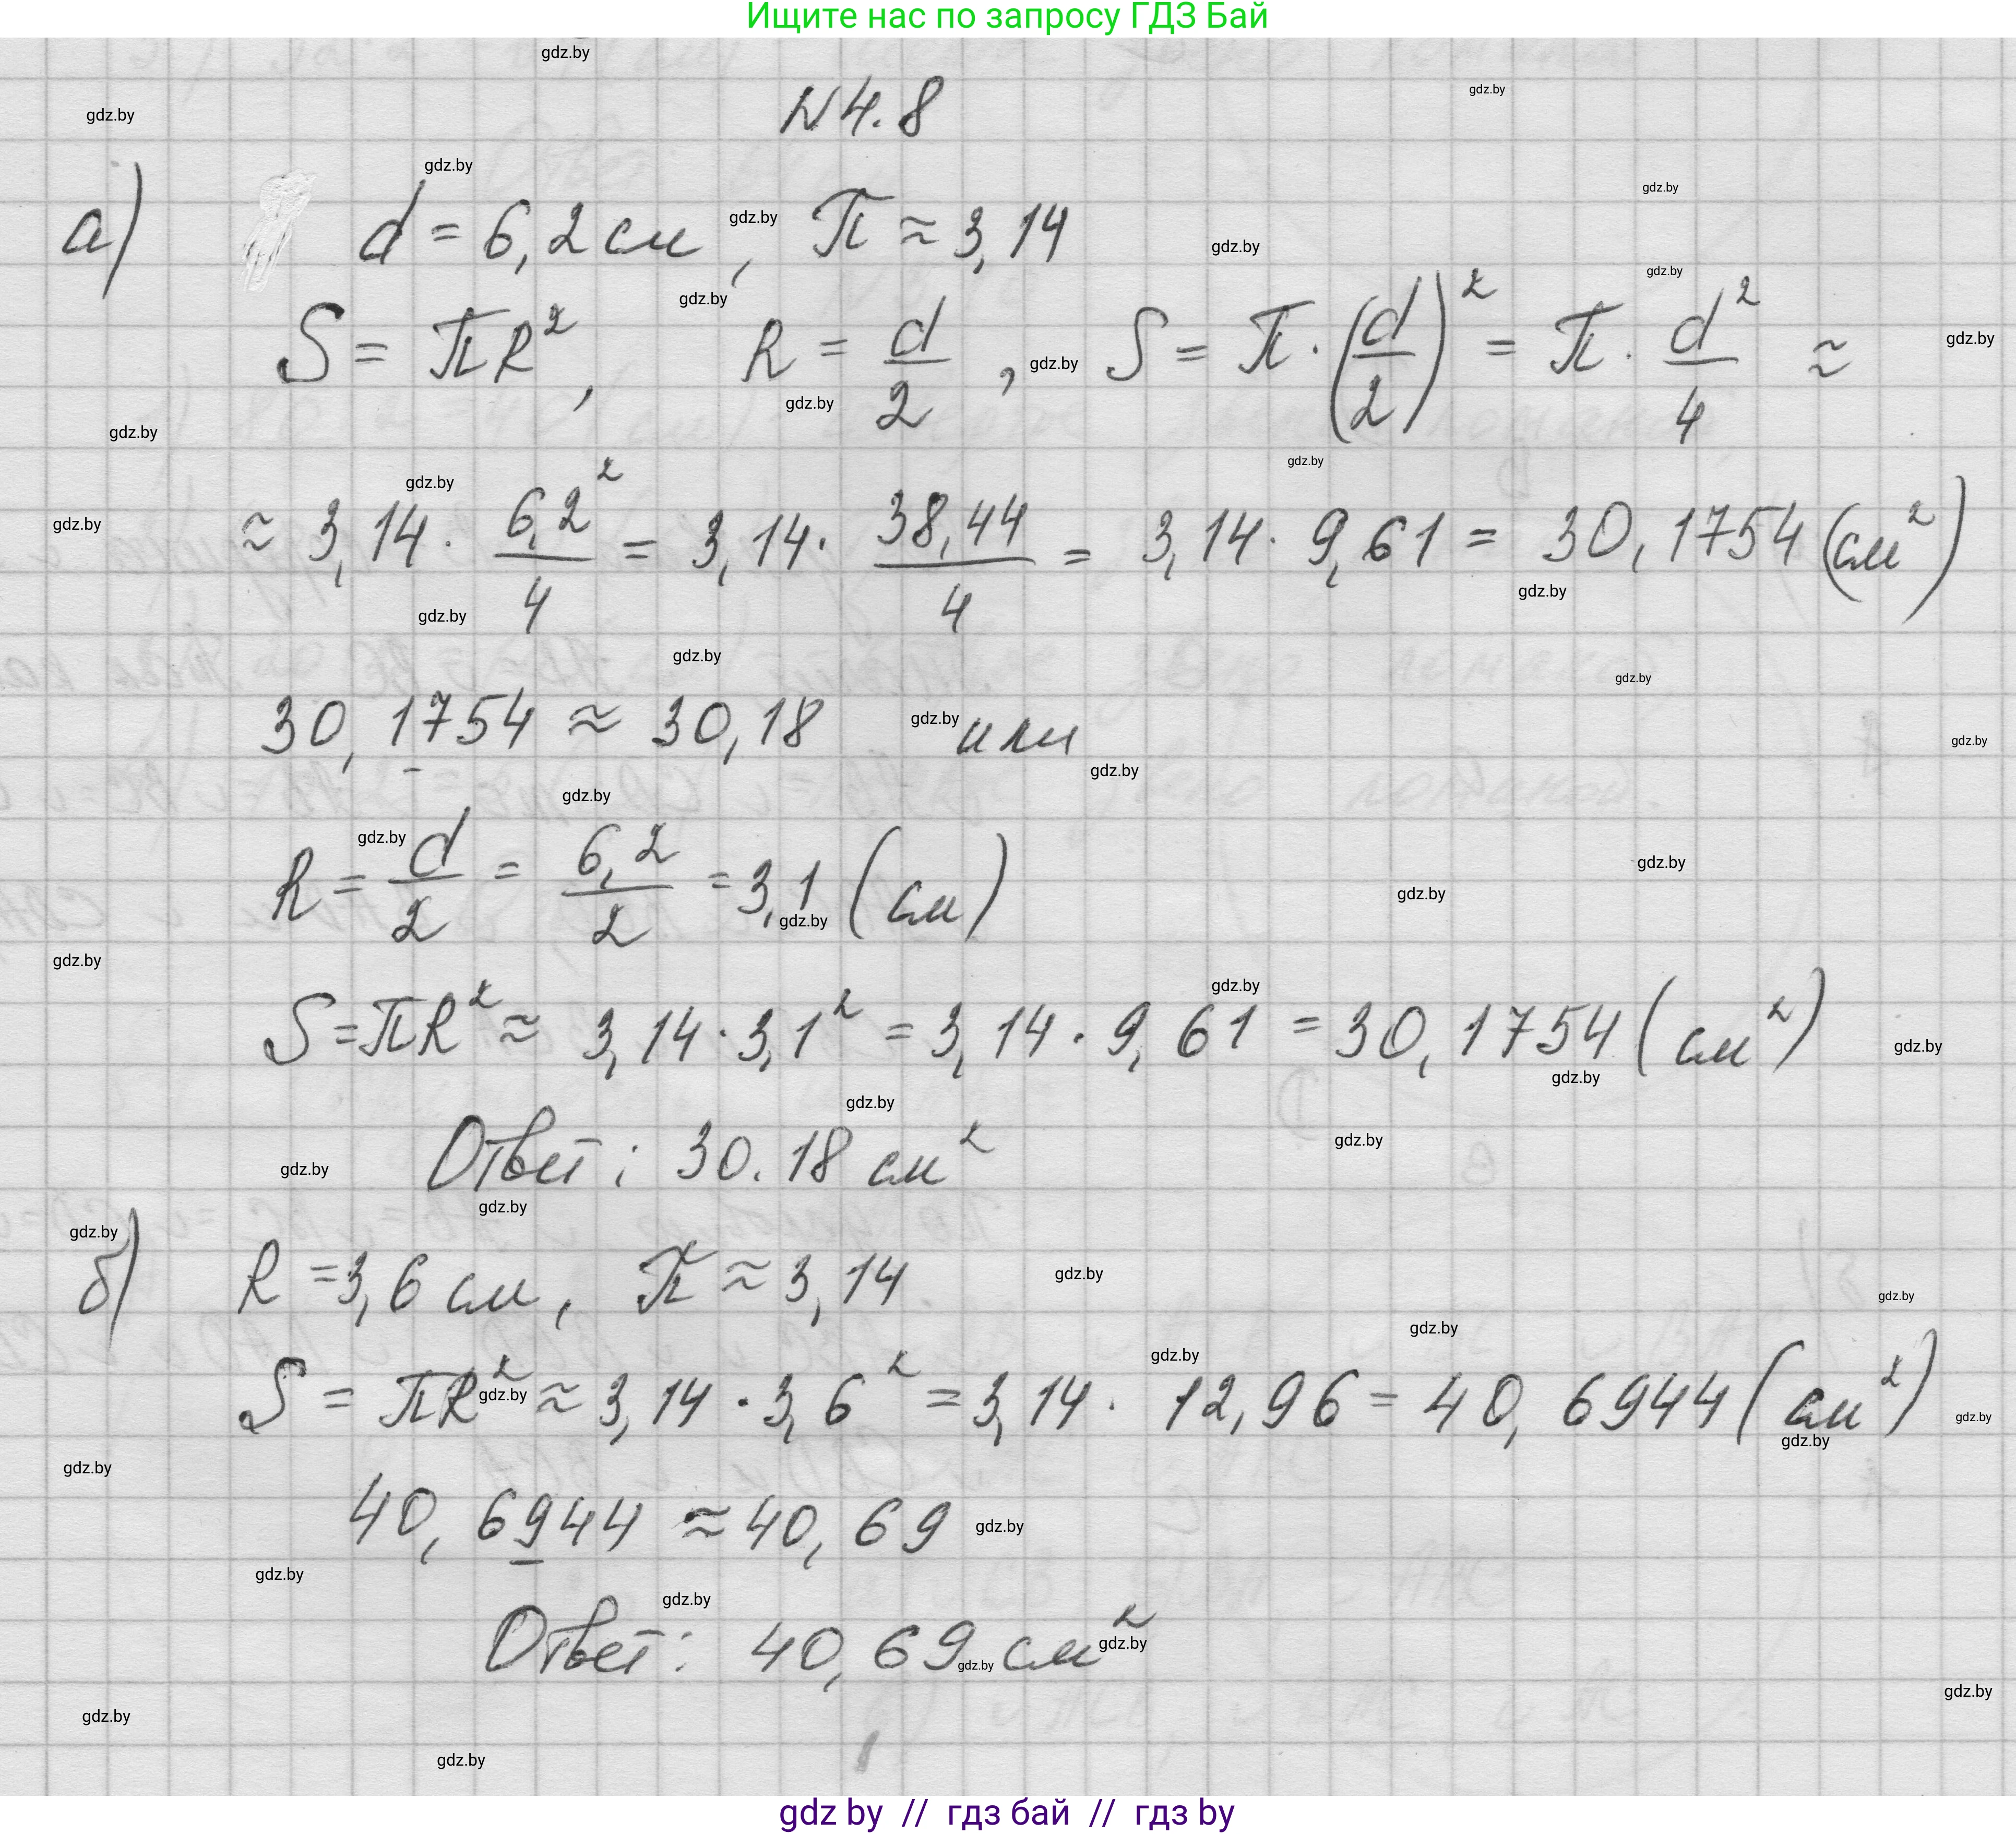 Ищите нас по запросу ГДЗ Бай
N 4.8
а) d = 6,2 см, π ≈ 3,14
S = πR², R = d/2, S = π · (d/2)² = π · d²/4 ≈
≈ 3,14 · 6,2²/4 = 3,14 · 38,44/4 = 3,14 · 9,61 = 30,1754 (см²)
30,1754 ≈ 30,18 или
R = d/2 = 6,2/2 = 3,1 (см)
S = πR² ≈ 3,14 · 3,1² = 3,14 · 9,61 = 30,1754 (см²)
Ответ: 30.18 см²
б) R = 3,6 см, π ≈ 3,14
S = πR² ≈ 3,14 · 3,6² = 3,14 · 12,96 = 40,6944 (см²)
40,6944 ≈ 40,69
Ответ: 40,69 см²
gdz by // гдз бай // гдз by